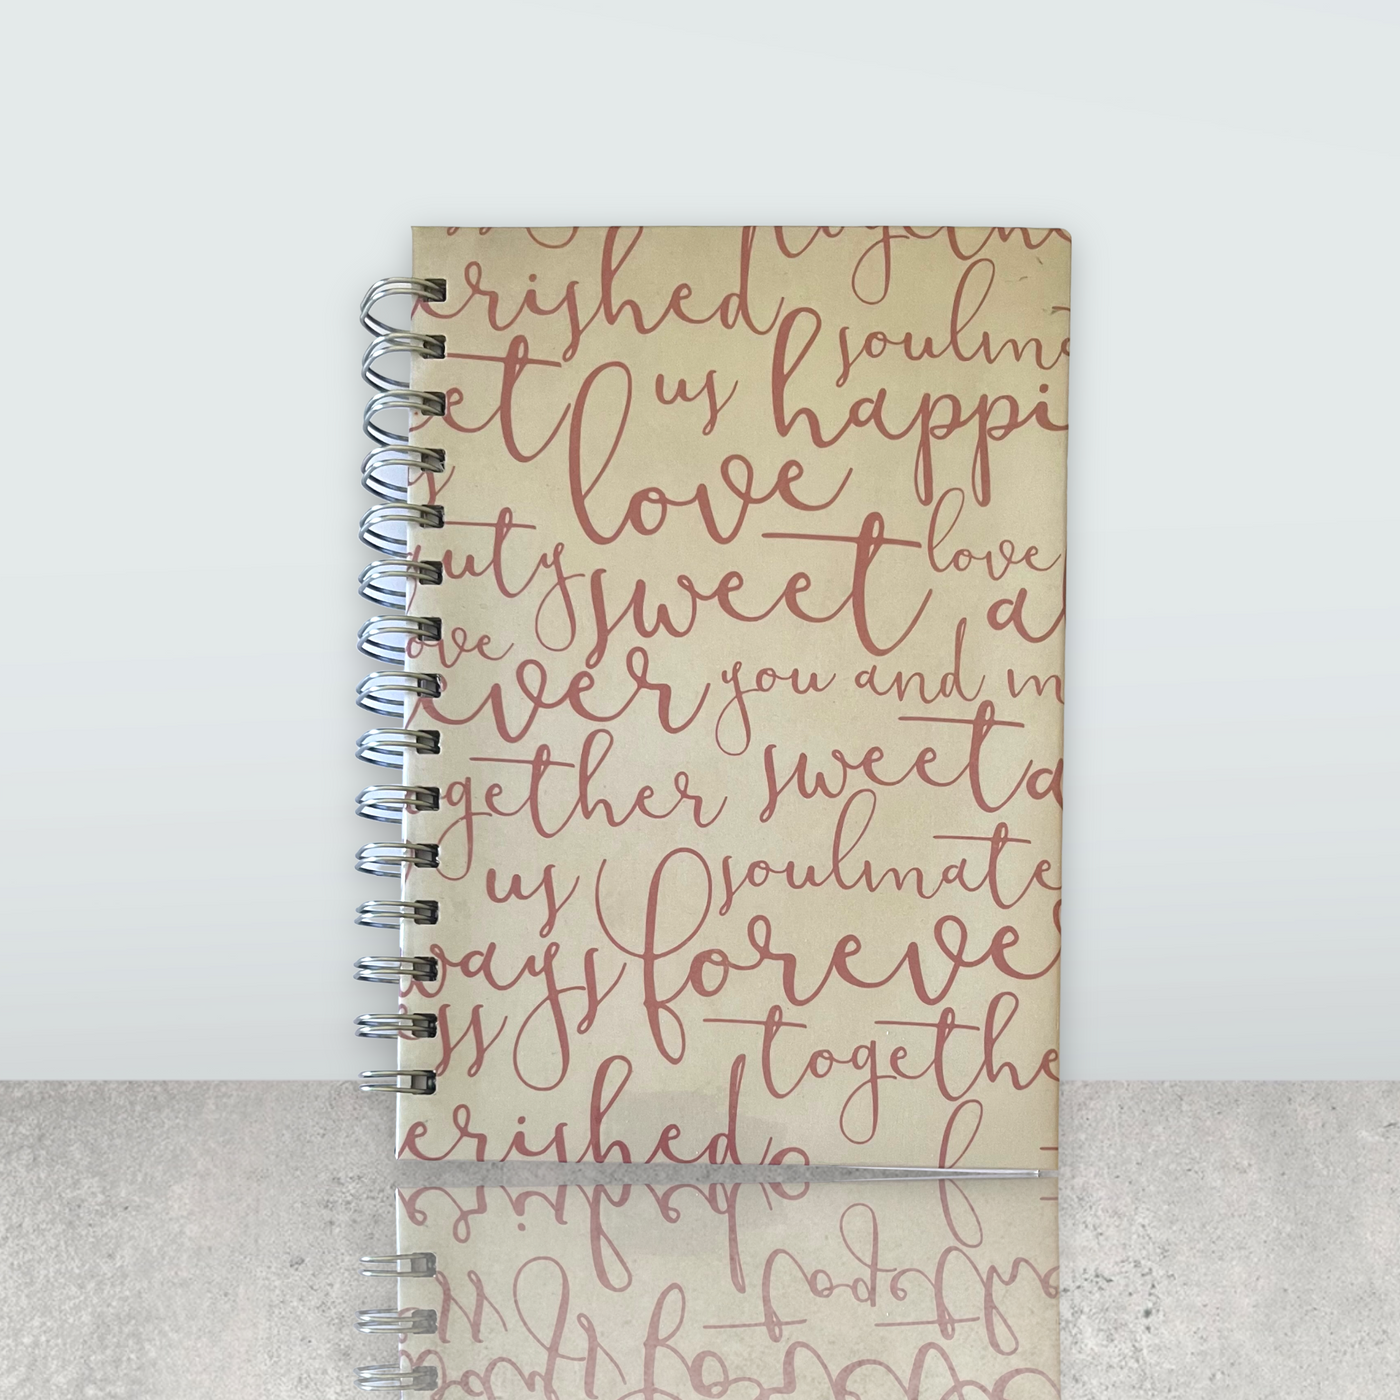 togethe
erished soulmat
et us happi
love
auty sweet love a
ove
ever you and m
ogether sweet a
us soulmate
ways foreve
ess togethe
erished